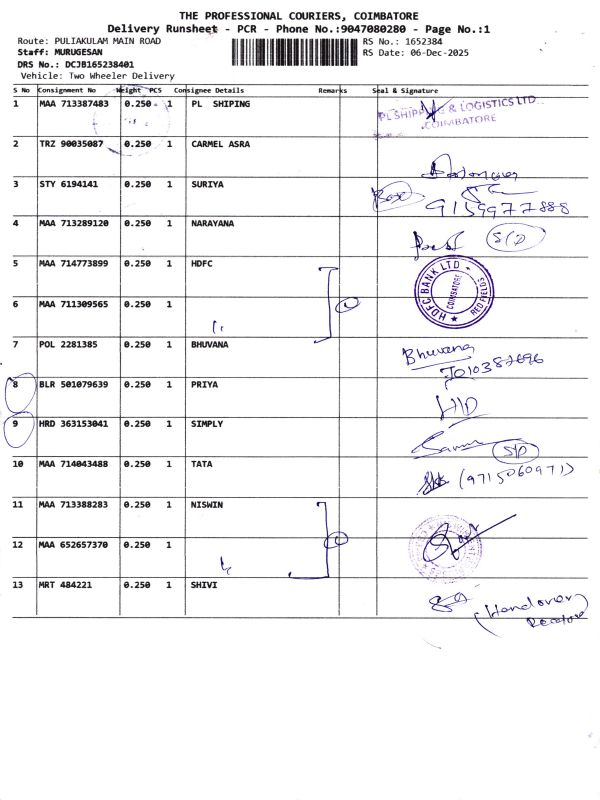 THE PROFESSIONAL COURIERS, COIMBATORE
Delivery Runsheet - PCR - Phone No.:9047080280 - Page No.:1
Route: PULIAKULAM MAIN ROAD
RS No.: 1652384
Staff: MURUGESAN
RS Date: 06-Dec-2025
DRS No.: DCJB165238401
Vehicle: Two Wheeler Delivery
S No Consignment No Weight PCS Consignee Details Remarks Seal & Signature
1 MAA 713387483 0.250 1 PL SHIPING
PL SHIPPING & LOGISTICS LTD.
COIMBATORE
2 TRZ 90035087 0.250 1 CARMEL ASRA
3 STY 6194141 0.250 1 SURIYA
9159977888
4 MAA 713289120 0.250 1 NARAYANA
S/D
5 MAA 714773899 0.250 1 HDFC
HDFC BANK LTD
COIMBATORE
RED FIELDS
6 MAA 711309565 0.250 1
7 POL 2281385 0.250 1 BHUVANA
Bhuvana
7010382696
8 BLR 501079639 0.250 1 PRIYA
H/D
9 HRD 363153041 0.250 1 SIMPLY
S/D
10 MAA 714043488 0.250 1 TATA
(9715060971)
11 MAA 713388283 0.250 1 NISWIN
12 MAA 652657370 0.250 1
13 MRT 484221 0.250 1 SHIVI
(Handover